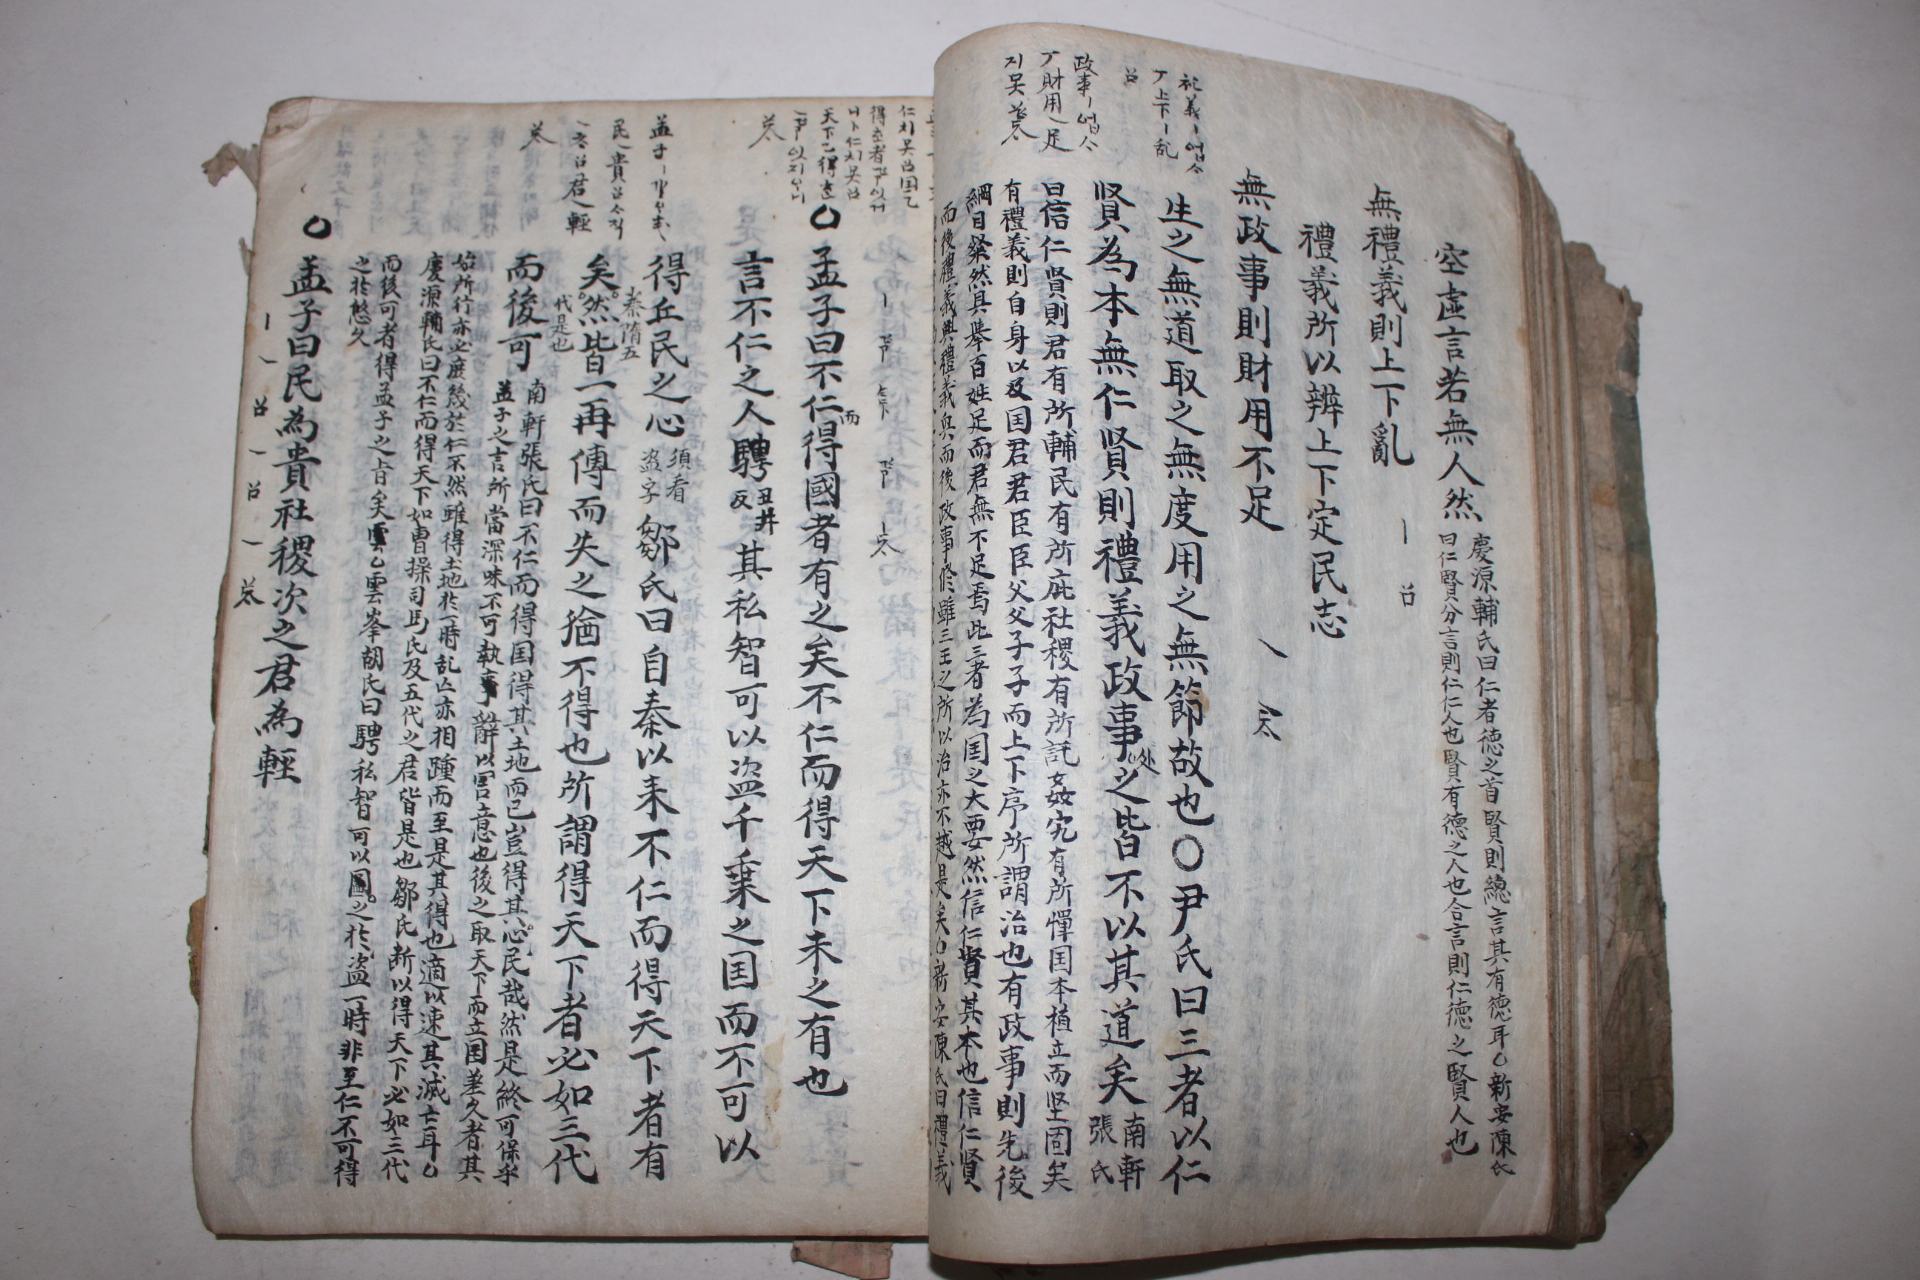 空虛言若無人然
慶源輔氏曰仁者德之首賢則總言其有德耳○新安陳氏
曰仁賢分言則仁仁人也賢有德之人也合言則仁德之賢人也
無禮義則上下亂
禮義所以辨上下定民志
無政事則財用不足
生之無道取之無度用之無節故也○尹氏曰三者以仁
賢為本無仁賢則禮義政事處之皆不以其道矣
南軒
張氏
曰信仁賢則君有所輔民有所庇社稷有所託姦宄有所憚国本植立而堅固矣
有禮義則自身以及国君君臣臣父父子子而上下序所謂治也有政事則先後
綱目粲然具舉百姓足而君無不足焉此三者為国之大要然信仁賢其本也信仁賢
而後禮義興禮義興而後政事修雖三王之所以治亦不越是矣○新安陳氏曰禮義
孟子曰不仁而得國者有之矣不仁而得天下未之有也
言不仁之人騁
丑井
反
其私智可以盜千乗之国而不可以
得丘民之心
須看
盜字
鄒氏曰自秦以来不仁而得天下者有
矣
秦隋五
代是也
然皆一再傳而失之猶不得也所謂得天下者必如三代
而後可
南軒張氏曰不仁而得国得其土地而已豈得其心民哉然是終可保乎
孟子之言所當深味不可執事辭以害意也後之取天下而立国差久者其
始所行亦必庶幾於仁不然雖得土地於一時乱亡亦相踵而至是其得也適以速其滅亡耳○
慶源輔氏曰不仁而得天下如曹操司馬氏及五代之君皆是也鄒氏断以得天下必如三代
而後可者得孟子之旨矣○雲峯胡氏曰騁私智可以圖之於盜一時非至仁不可得
之於悠久
孟子曰民為貴社稷次之君為輕